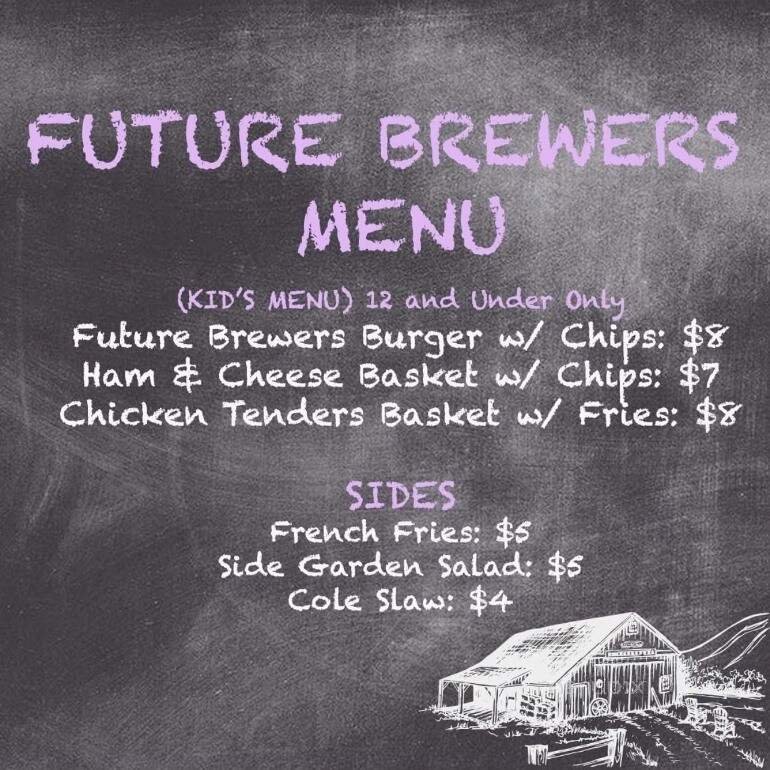 FUTURE BREWERS
MENU
(KID'S MENU) 12 and Under Only
Future Brewers Burger w/ Chips: $8
Ham & Cheese Basket w/ Chips: $7
Chicken Tenders Basket w/ Fries: $8
SIDES
French Fries: $5
Side Garden Salad: $5
Cole Slaw: $4